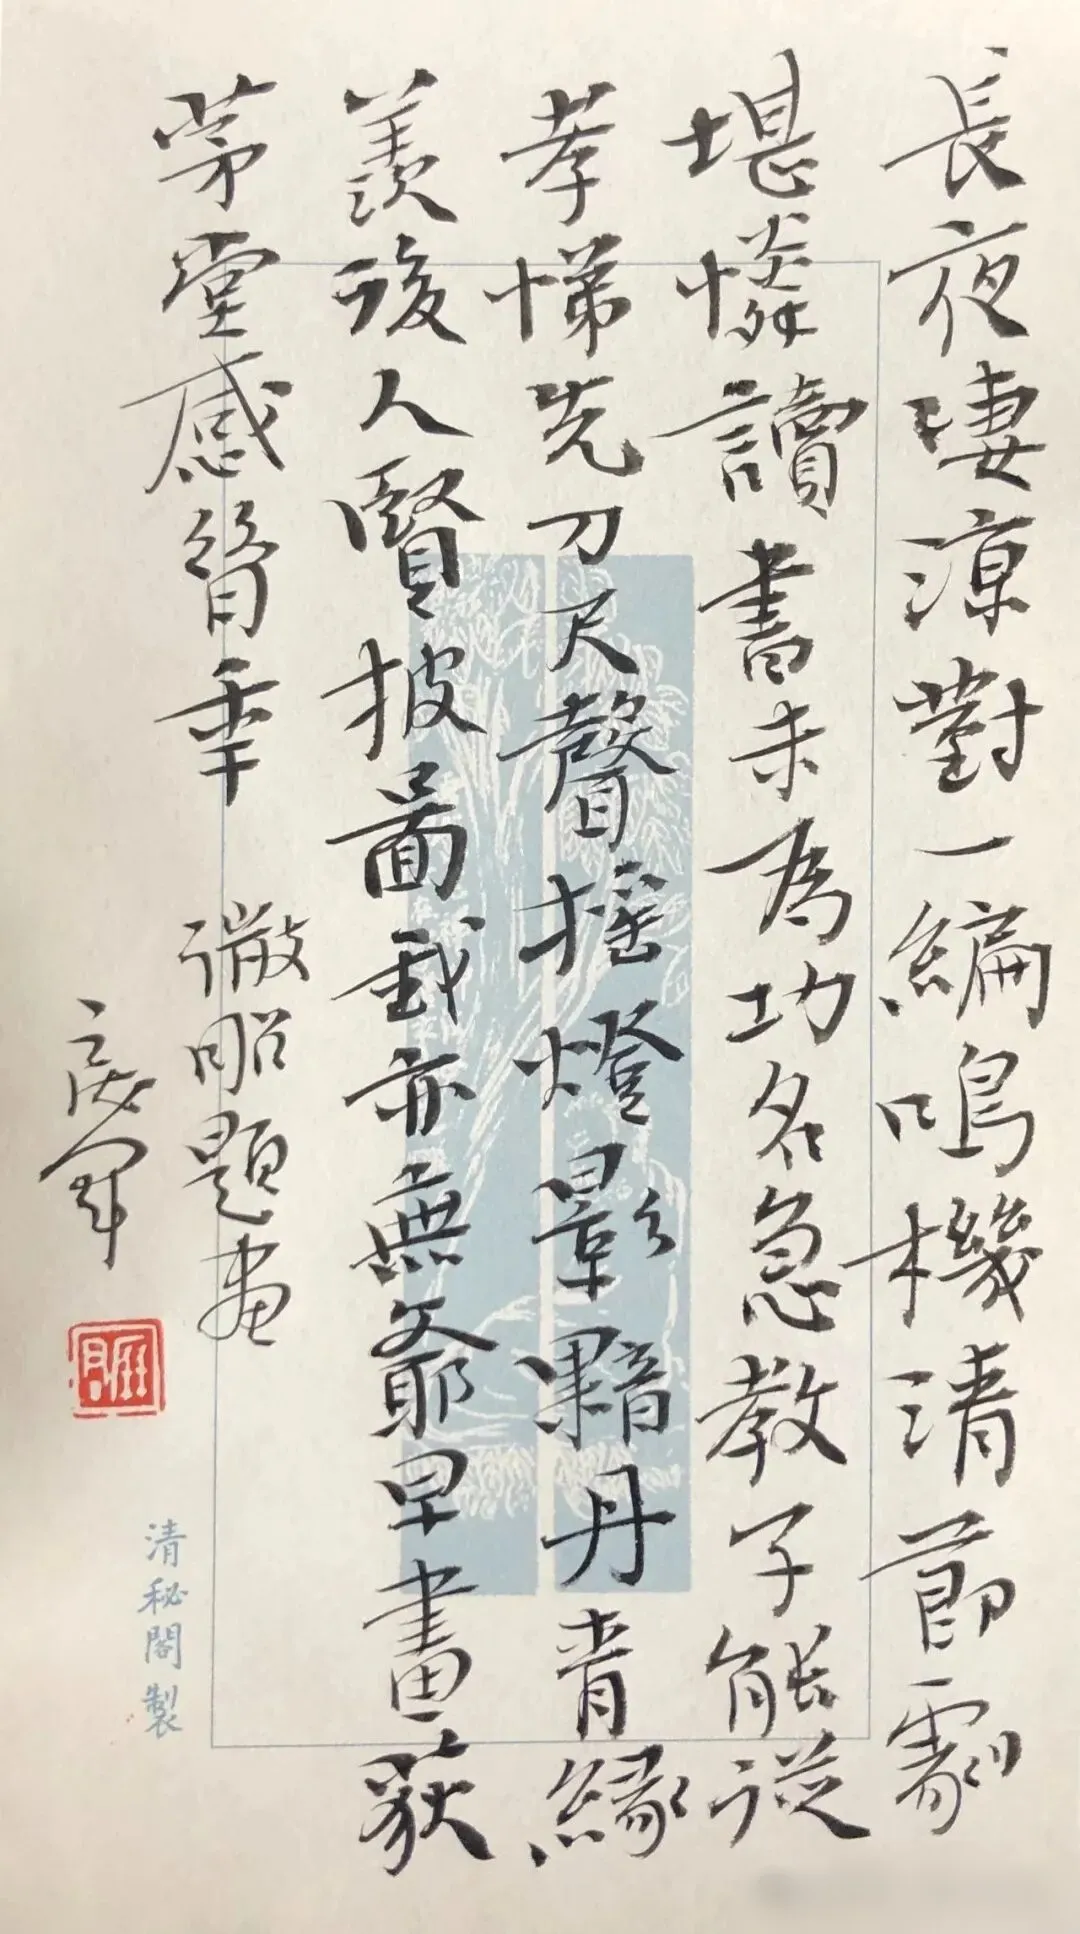 長夜淒涼對一編鳴機清節劇
堪憐讀書未為功名急教子能從
孝悌先刀尺聲搖燈影黯丹青緣
羨後人賢披圖我亦無爺早畫荻
茅堂感昔年 微昭題畫
清秘閣製